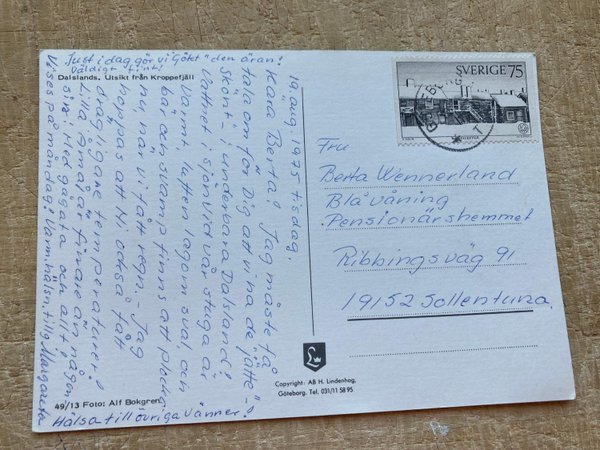 Just i dag gör vi Götet "den äran!
Väldigt fint!
Dalslands. Utsikt från Kroppefjäll
19. aug. 1975 tisdag.
Kära Berta! Jag måste få
tala om för Dig att vi ha de "jätte-
skönt" i underbara Dalsland!
Vattnet i sjön vid vår stuga är
varmt, luften lagom sval, och
bär och svamp finns att plocka
nu, när vi fått regn. Jag
hoppas att Ni också fått
drägligare temperaturer!
Lilla Åmål är finare än någon-
sin! Med gågata och allt!
Vi ses på måndag! Varm hälsn. till Dig Margareta
Hälsa till övriga vänner!
49/13 Foto: Alf Bokgren
SVERIGE 75
Fru
Berta Wennerland
Blå våning
Pensionärshemmet
Ribbingsväg 91
19152 Sollentuna
L
Copyright: AB H. Lindenhag,
Göteborg. Tel. 031/11 58 95